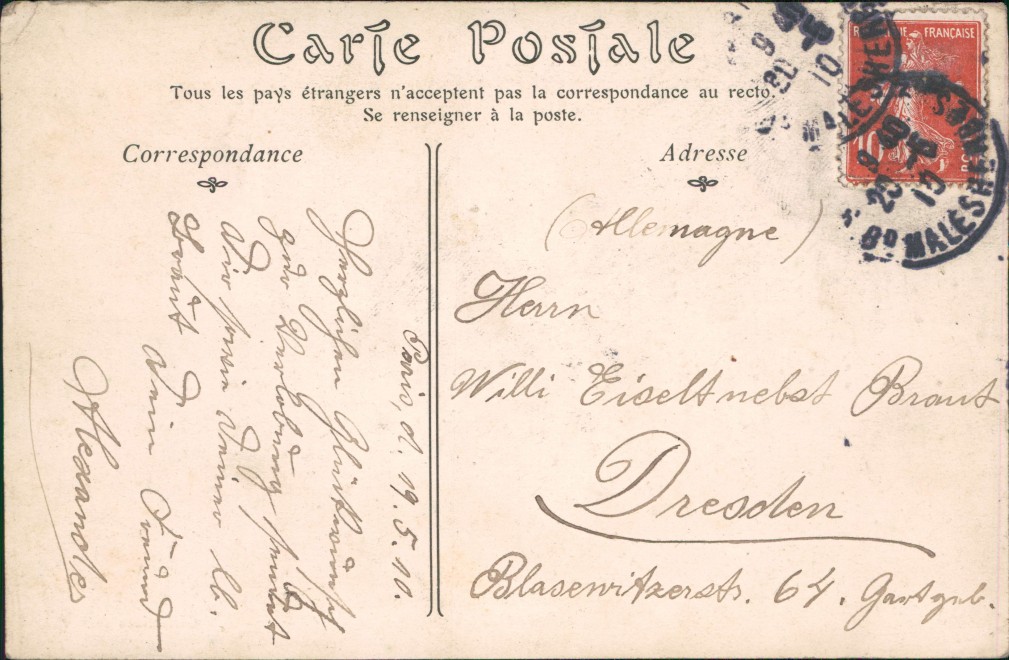 Carte Postale
Tous les pays étrangers n'acceptent pas la correspondance au recto.
Se renseigner à la poste.
Correspondance
Adresse
Paris, d. 19.5.10.
Herzlichen Glückwunsch
zur Verlobung sendet
Dir sowie Deiner lb.
Braut Dein Freund
Alexander
(Allemagne)
Herrn
Willi Eiselt nebst Braut
Dresden
Blasewitzerstr. 64. Gartgeb.
FRANÇAISE
10
POSTES
Bd MALESHERBES
20
10